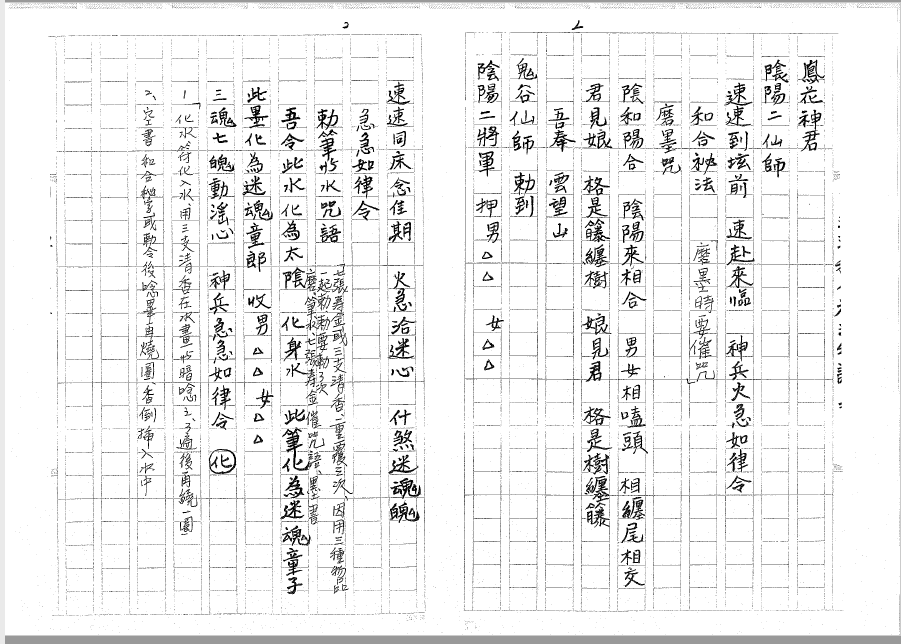 1
鳳花神君
陰陽二仙師
速速到壇前 速赴來臨 神兵火急如律令
和合祕法 「磨墨時要催咒」
磨墨咒
陰和陽合 陰陽來相合 男女相嗑頭 相纏尾相交
君見娘 格是籐纏樹 娘見君 格是樹纏籐
吾奉 雲望山
鬼谷仙師 勅到
陰陽二將軍 押男△△ 女△△
2
速速同床念佳期 火急洽迷心 什煞迷魂魄
急急如律令
勅筆於水咒語
「七張壽金或三支清香、一重覆三次、因用三種物品
一起勅勅要勅3次
磨筆水七張壽金催咒語、墨書
吾令此水化為太陰 化身水 此筆化為迷魂童子
此墨化為迷魂童郎 收男△△女△△
三魂七魄動滛心 神兵急急如律令 化
1「化水符化入水、用三支清香在水畫於暗唸2、3遍後再繞一圈
2、空書和合秘字或勅令後唸畢再燒圈、香倒插入水中